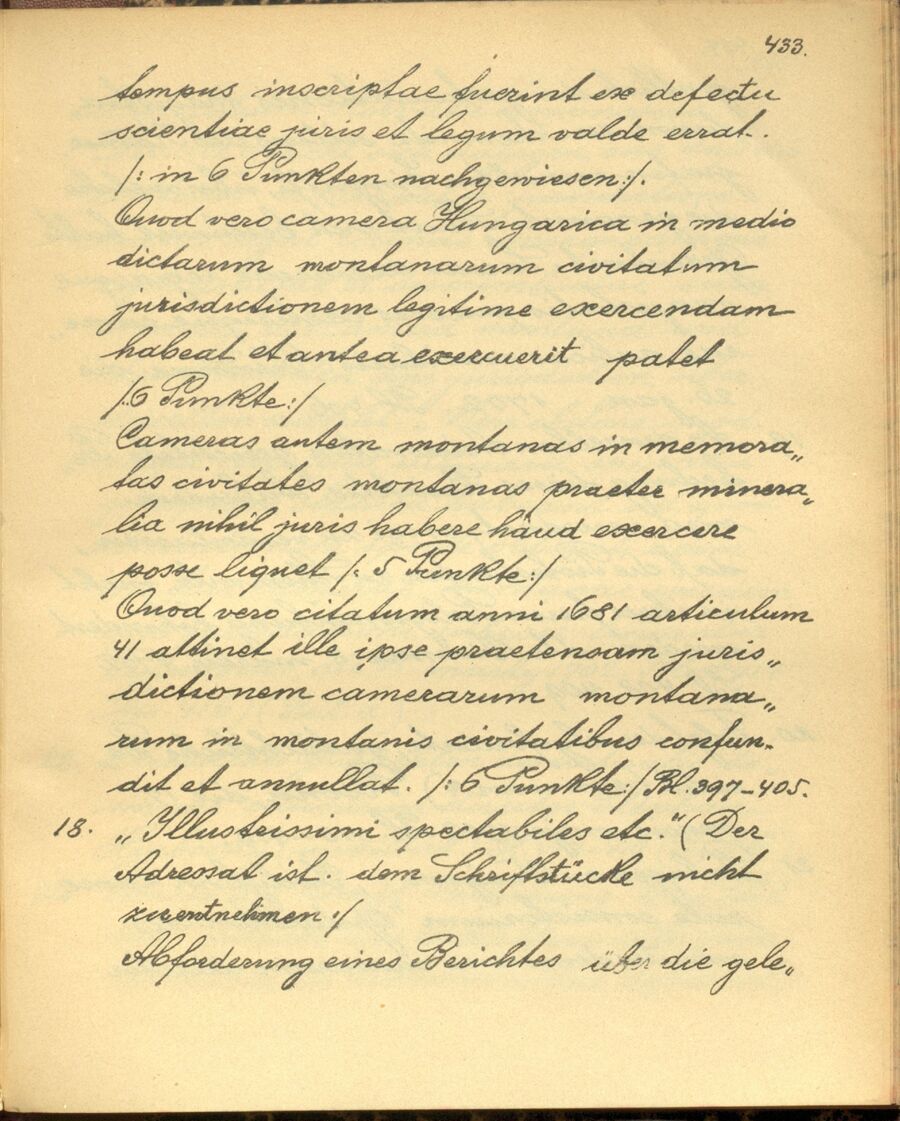 433.
tempus inscriptae fuerint ex defectu
scientiae juris et legum valde errat.
/: in 6 Punkten nachgewiesen :/.
Quod vero camera Hungarica in medio
dictarum montanarum civitatum
jurisdictionem legitime exercendam
habeat et antea exercuerit patet
/:6 Punkte:/
Cameras autem montanas in memora„
tas civitates montanas praeter minera„
lia nihil juris habere haud exercere
posse liquet /: 5 Punkte:/
Quod vero citatum anni 1681 articulum
41 attinet ille ipse praetensam juris„
dictionem camerarum montana„
rum in montanis civitatibus confun-
dit et annullat. /: 6 Punkte:/ Bl. 397-405.
18. „Illustrissimi spectabiles etc." (Der
Adressat ist. dem Schriftstücke nicht
zu entnehmen :/
Abforderung eines Berichtes über die gele„